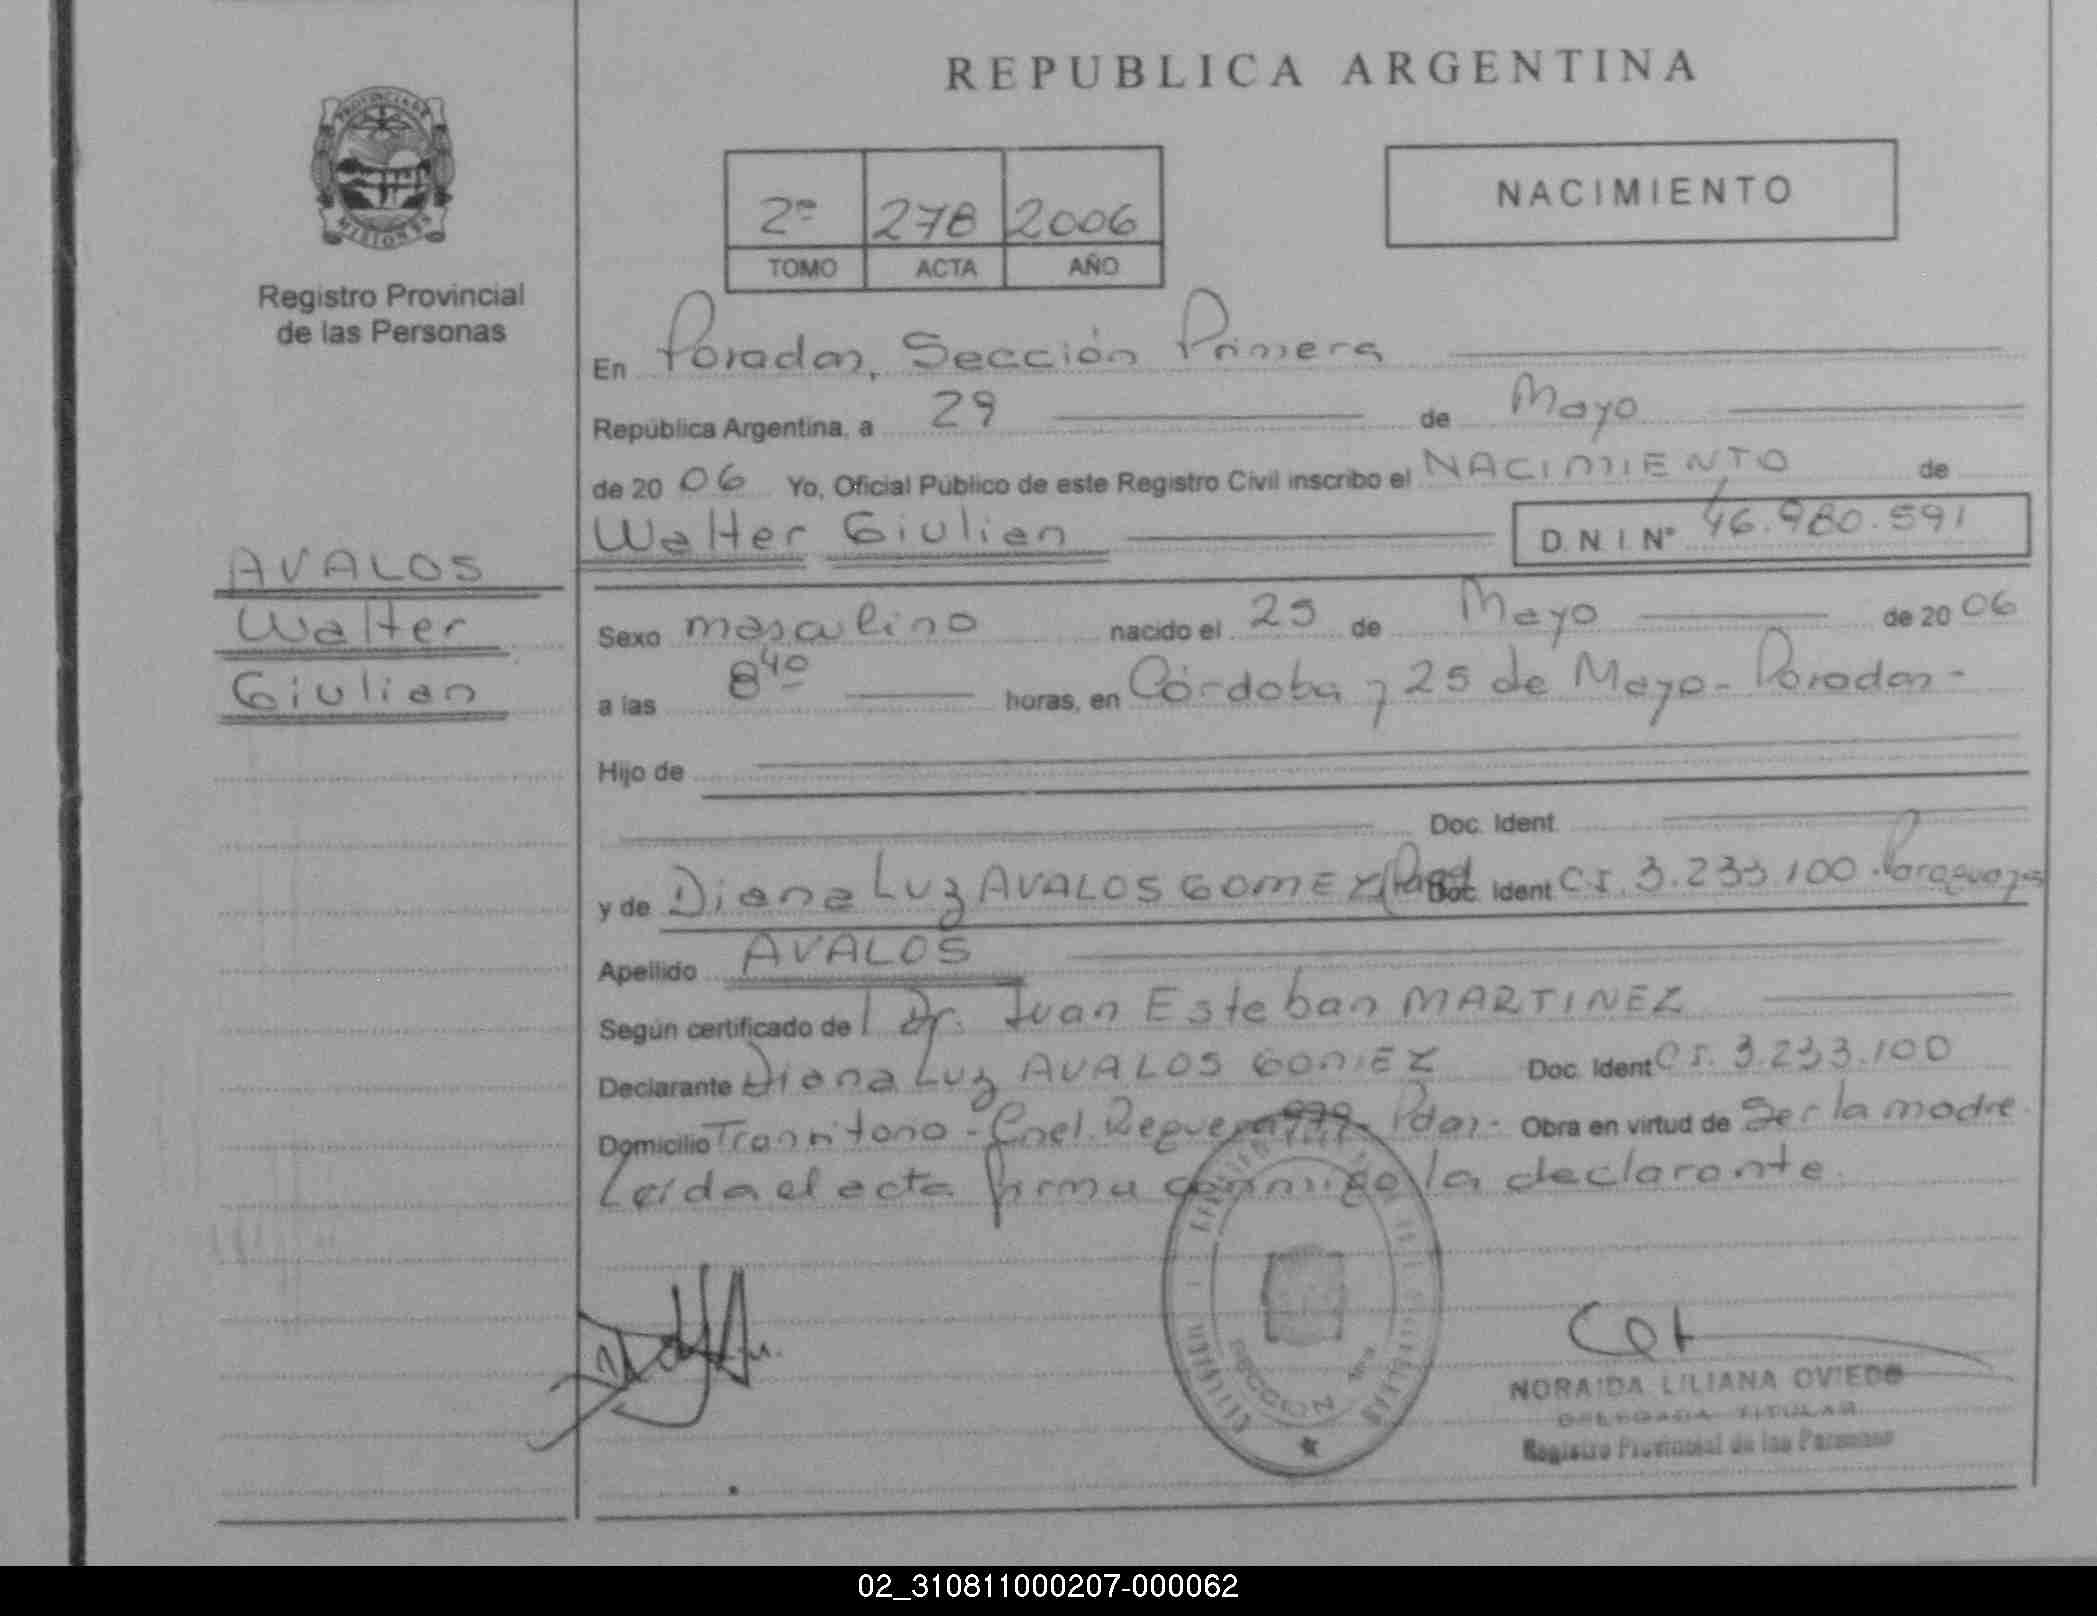 REPUBLICA ARGENTINA
PROVINCIA DE
MISIONES
Registro Provincial
de las Personas
2º 278 2006
TOMO ACTA AÑO
NACIMIENTO
En Posadas, Sección Primera
República Argentina, a 29 de Mayo
de 20 06 Yo, Oficial Público de este Registro Civil inscribo el NACIMIENTO de
Walter Giulian D.N.I. Nº 46.980.591
AVALOS
Walter
Giulian
Sexo masculino nacido el 25 de Mayo de 20 06
a las 8 40 horas, en Córdoba y 25 de Mayo - Posadas -
Hijo de
Doc. Ident.
y de Diana Luz AVALOS GOMEZ Doc. Ident C.I. 3.233.100 Paraguaya
Apellido AVALOS
Según certificado de l Dr. Juan Esteban MARTINEZ
Declarante Diana Luz AVALOS GOMEZ Doc. Ident C.I. 3.233.100
Domicilio Transitorio - Cnel. Reguera - Pdas - Obra en virtud de Ser la madre.
Leída el acta firma conmigo la declarante.
SECCION
NORAIDA LILIANA OVIEDO
DELEGADA TITULAR
Registro Provincial de las Personas
02_310811000207-000062